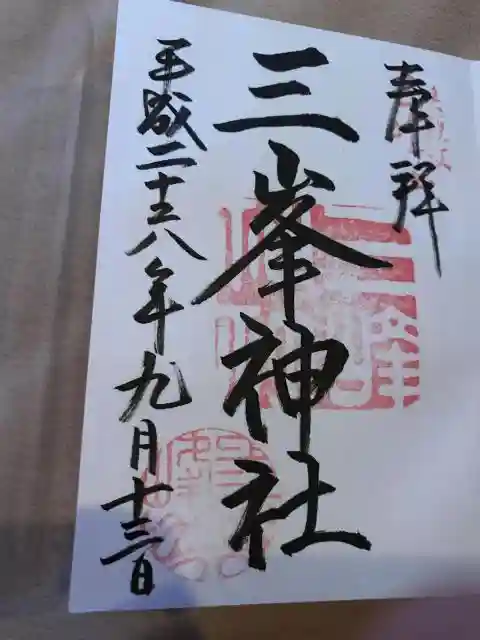 奉拝
三峯神社
平成二十八年九月十三日